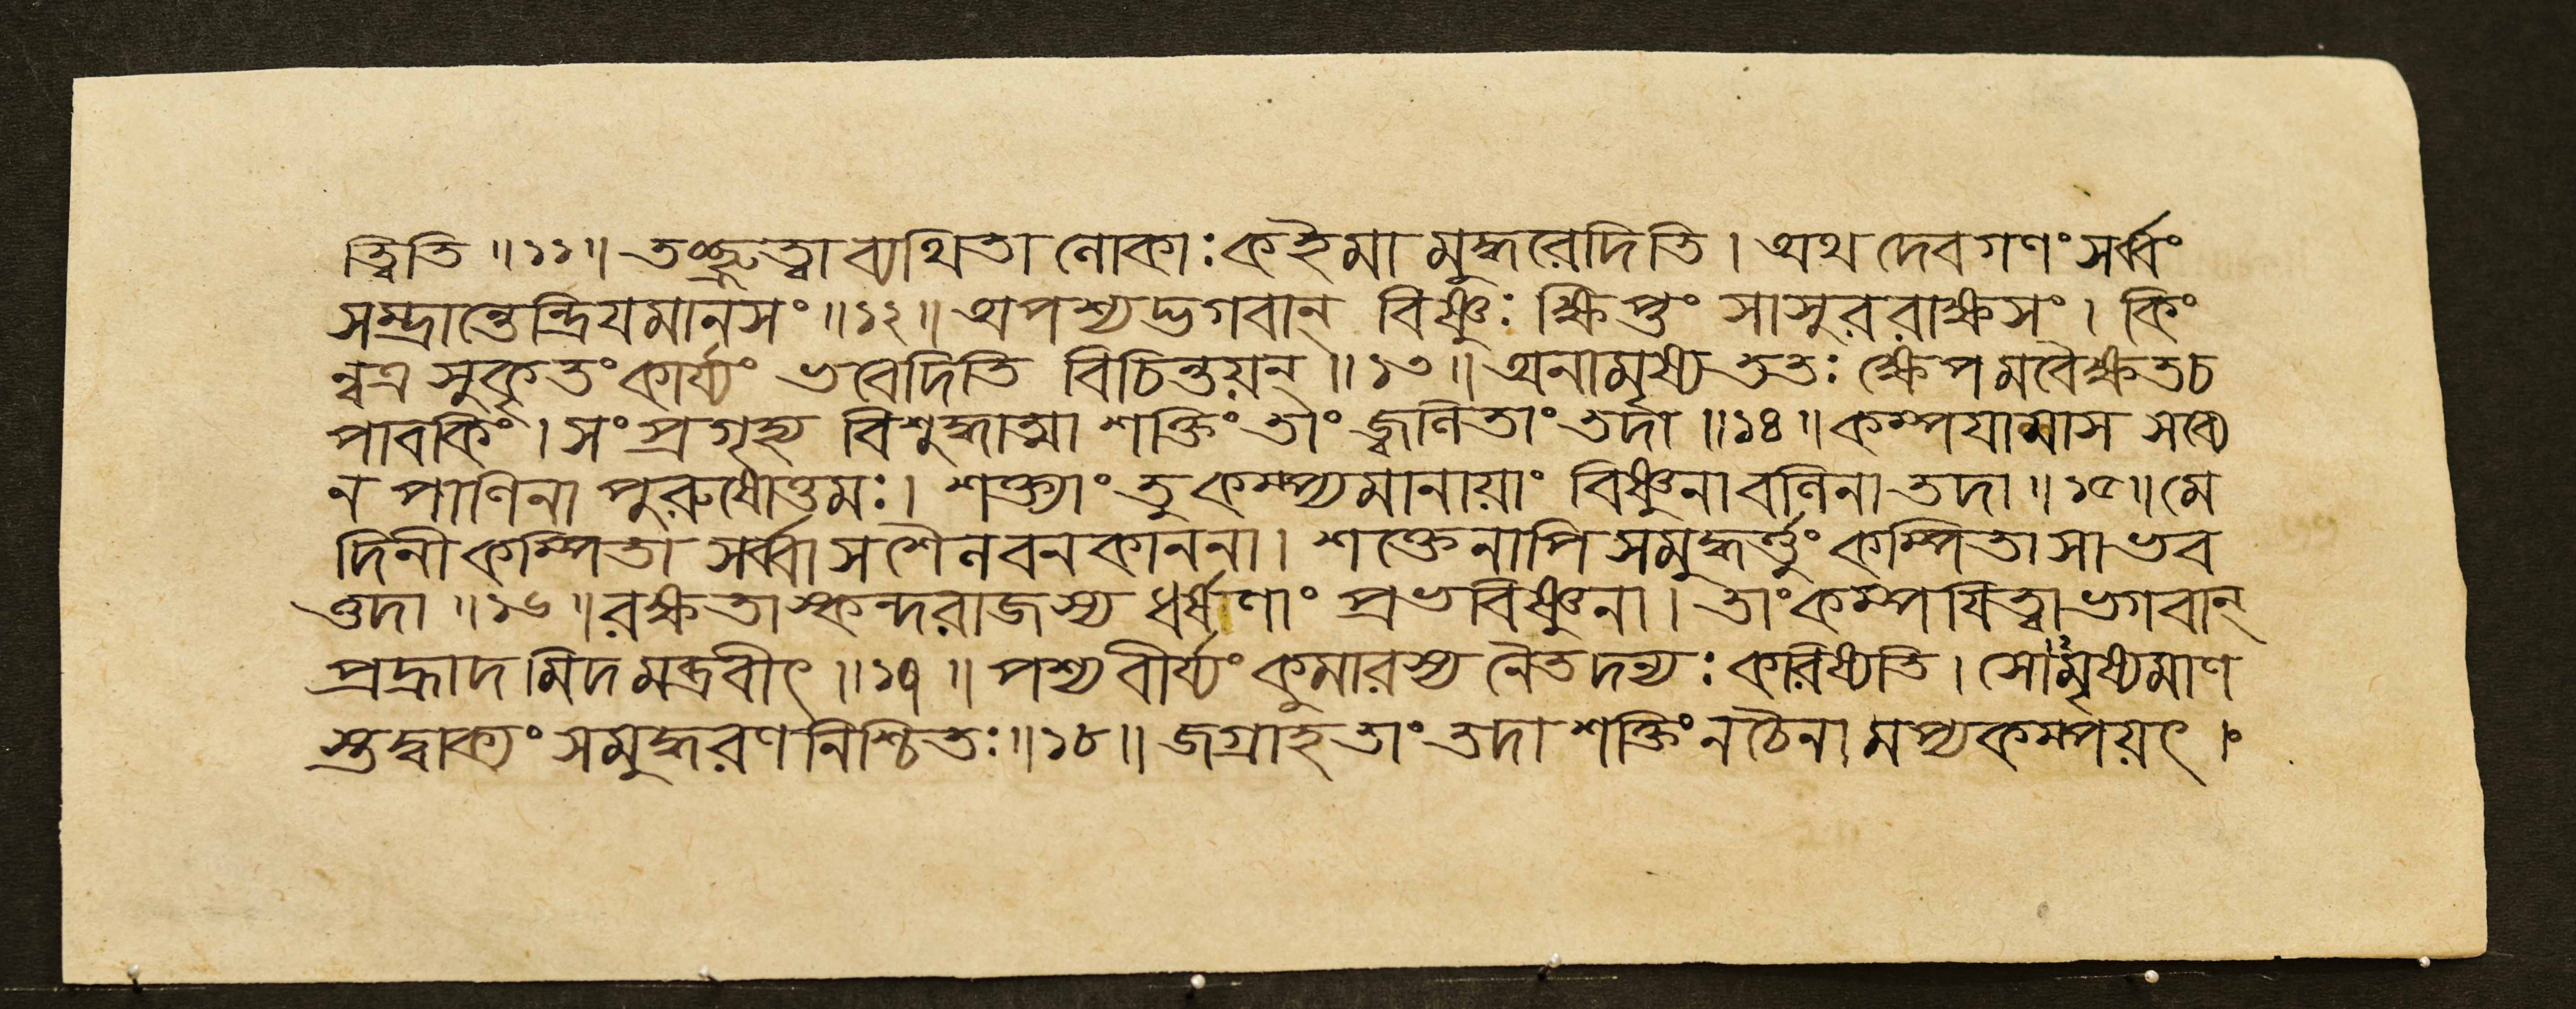 ত্ত্বিতি ॥ ১১ ॥ তচ্ছ্রুত্বা ব্যথিতা লোকাঃ কইমামুদ্ধরেদিতি । অথ দেবগণং সর্ব্বং
সম্ভ্রান্তেন্দ্রিযমানসং ॥ ১২ ॥ অপশ্যদ্ভগবান্ বিষ্ণুঃ ক্ষিপ্তং সাসুররাক্ষসং । কিং
ন্বত্র সুকৃতং কার্য্যং ভবেদিতি বিচিন্তয়ন্ ॥ ১৩ ॥ অনামৃষ্য ততঃ ক্ষেপমবৈক্ষতচ
পাবকিং । সংপ্রগৃহ্য বিশুদ্ধাত্মা শক্তিং তাং জ্বলিতাং তদা ॥ ১৪ ॥ কম্পযামাস সব্যে
ন পাণিনা পুরুষোত্তমঃ । শক্ত্যাং তু কম্প্যমানায়াং বিষ্ণুনা বলিনা তদা ॥ ১৫ ॥ মে
দিনী কম্পিতা সর্ব্বা সশৈলবনকাননা । শক্তেনাপি সমুদ্ধর্ত্তুং কম্পিতা সাভব
ত্তদা ॥ ১৬ ॥ রক্ষতা স্কন্দরাজস্য ধর্ষণাং প্রভবিষ্ণুনা । তাং কম্পযিত্বা ভগবান্
প্রহ্লাদমিদমব্রবীৎ ॥ ১৭ ॥ পশ্য বীর্য্যং কুমারস্য নৈতদন্যঃ করিষ্যতি । সোমৃষ্যমাণ
স্তদ্বাক্যং সমুদ্ধরণনিশ্চিতঃ ॥ ১৮ ॥ জগ্রাহ তাং তদা শক্তিং নচৈনামপ্যকম্পয়ৎ ।